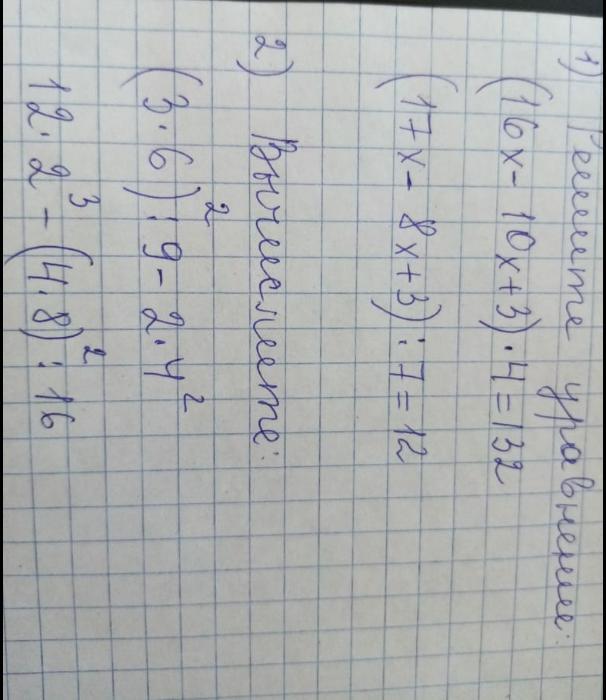 1) Решите уравнение:
(16x - 10x + 3) · 4 = 132
(17x - 8x + 3) : 7 = 12
2) Вычислите:
(3 · 6)² : 9 - 2 · 4²
12 · 2³ - (4 · 8)² : 16